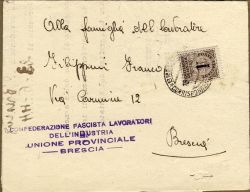 Alla famiglia del lavoratore
Filippini Franco
Via Carmine 12
Brescia
CONFEDERAZIONE FASCISTA LAVORATORI
DELL'INDUSTRIA
UNIONE PROVINCIALE
BRESCIA